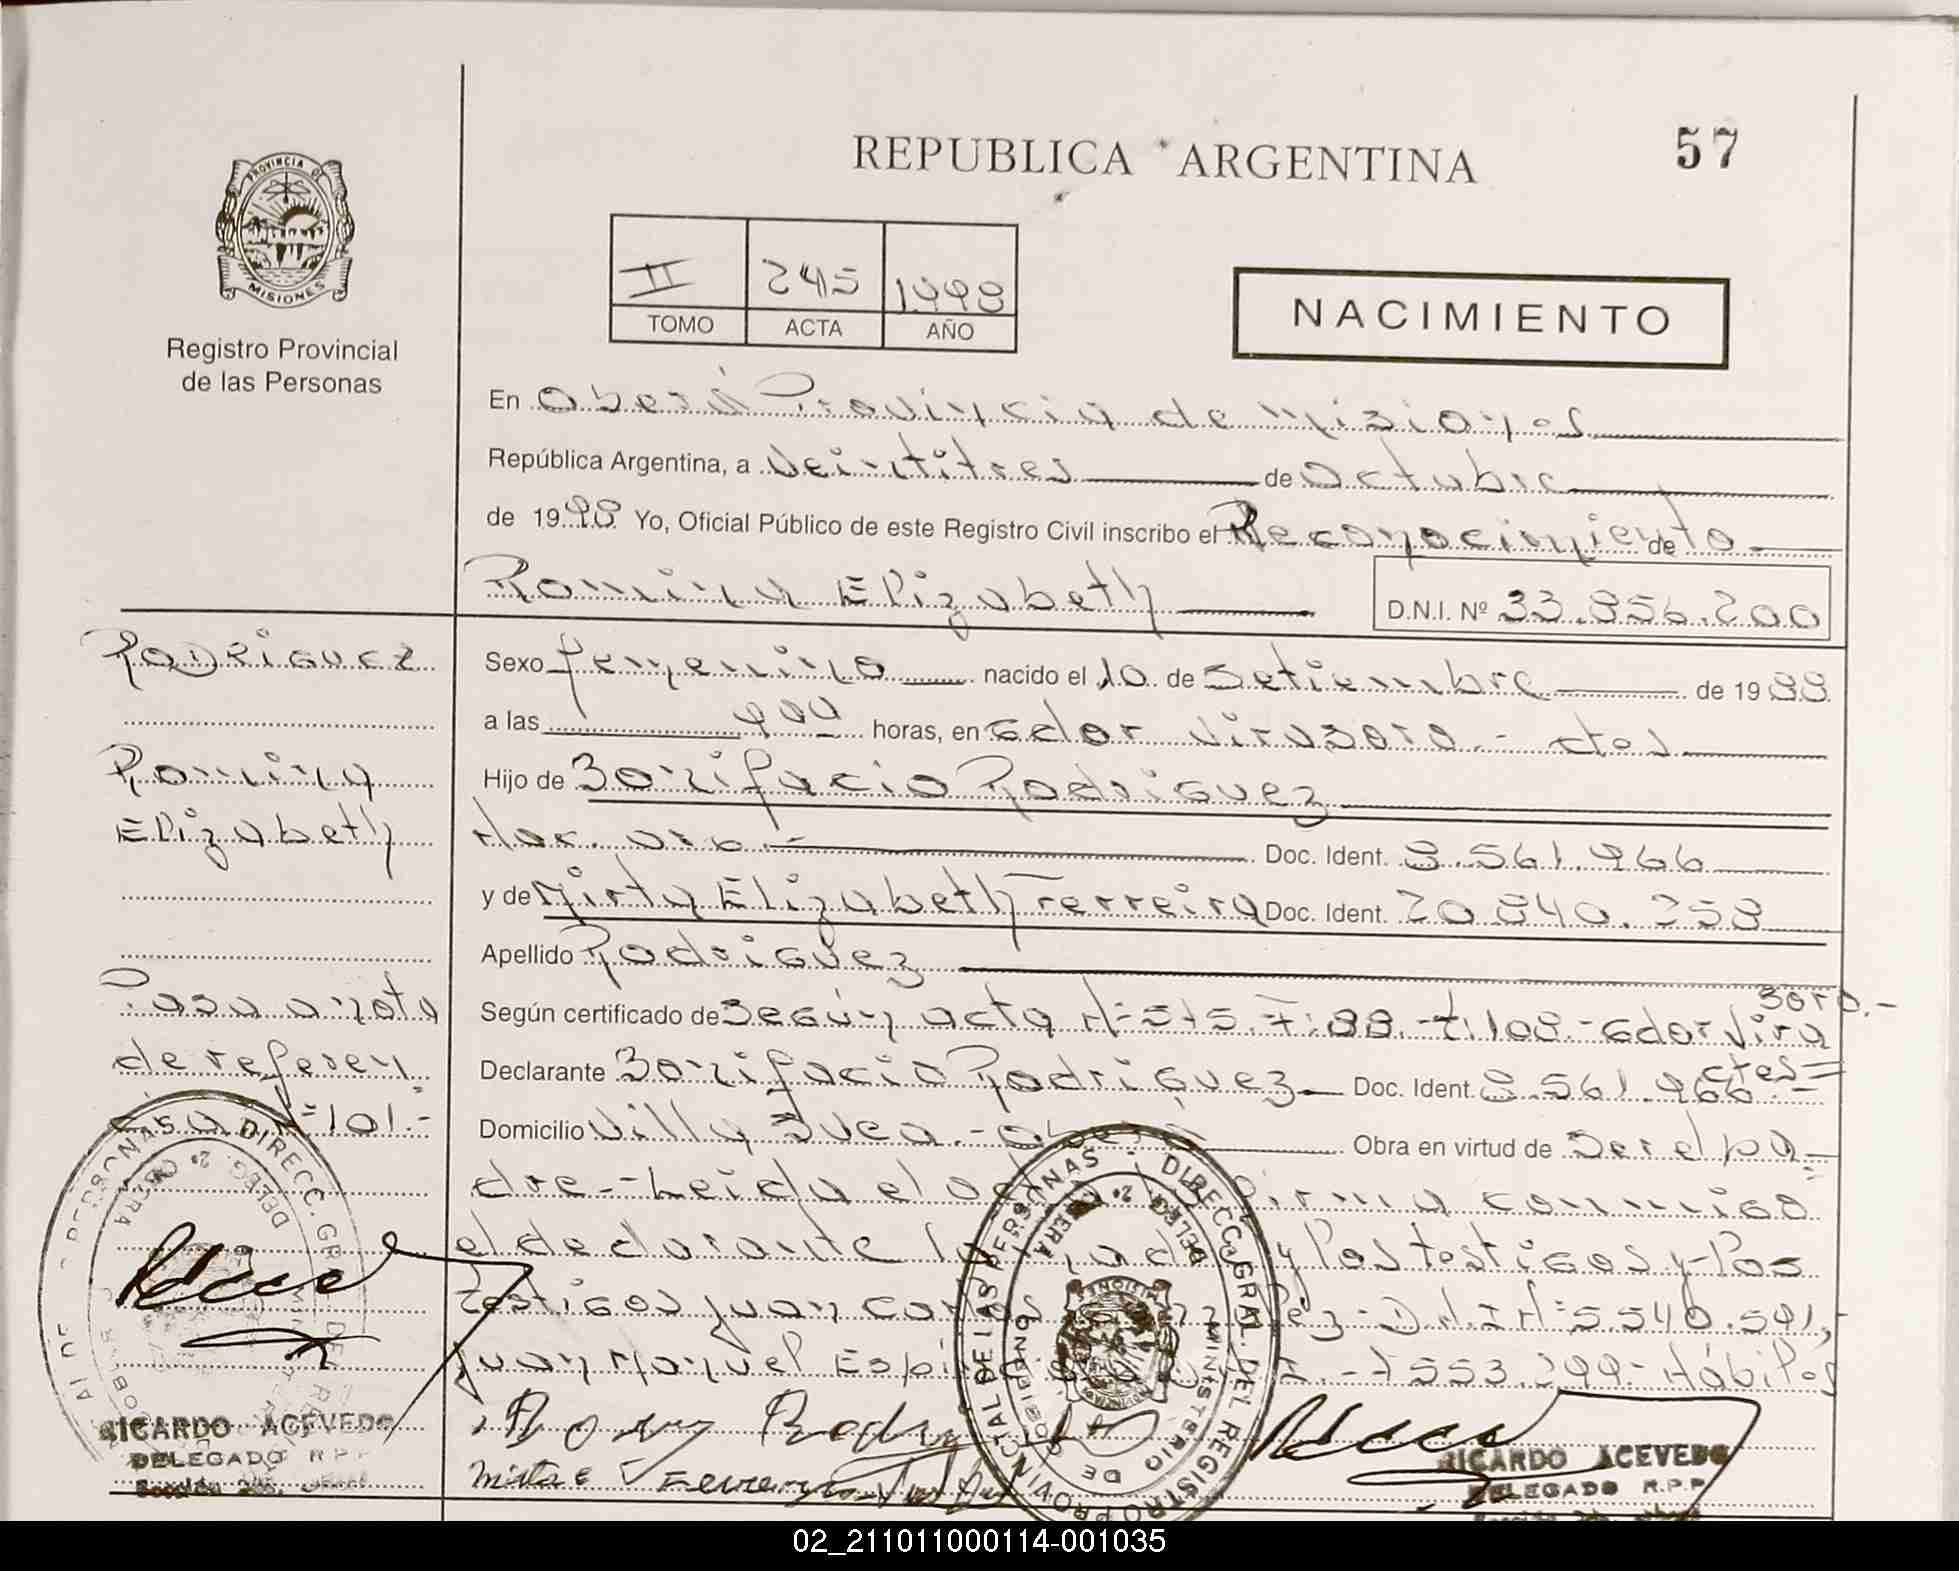 REPUBLICA ARGENTINA
57
PROVINCIA DE
MISIONES
Registro Provincial
de las Personas
II 245 1998
TOMO ACTA AÑO
NACIMIENTO
En Oberá Provincia de Misiones
República Argentina, a veintitres de Octubre
de 1998 Yo, Oficial Público de este Registro Civil inscribo el Reconocimiento de
Romina Elizabeth D.N.I. Nº 33.856.200
Rodriguez
Romina
Elizabeth
Pasa a nota
de referen
cia Nº 101.-
Sexo femenino nacido el 10 de Setiembre de 1988
a las horas, en Gdor Virasoro.- ctes
Hijo de Bonifacio Rodriguez
Doc. Ident. 8.561.966
y de Mirta Elizabeth Ferreira Doc. Ident. 20.840.258
Apellido Rodriguez
Según certificado de Según acta Nº 515.F:88.-t.108.-Gdor Vira
soro.-
ctes=
Declarante Bonifacio Rodriguez Doc. Ident. 8.561.966.-
Domicilio Villa Oberá Obra en virtud de Ser el pa=
dre.-Leida el firma conmigo
el declarante la y los testigos y los
testigos Juan Carlos D.N.I Nº 5.540.591,-
Juan Manuel 7553.299- Hábiles
RICARDO ACEVEDO
DELEGADO R.P.P
RICARDO ACEVEDO
DELEGADO R.P.P
DIRECC. GRAL. DEL REGISTRO PROVINCIAL DE LAS PERSONAS
MINISTERIO DE GOBIERNO
02_211011000114-001035